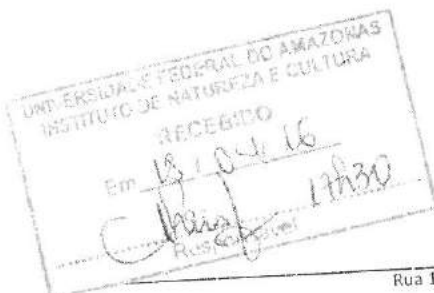 UNIVERSIDADE FEDERAL DO AMAZONAS
INSTITUTO DE NATUREZA E CULTURA
RECEBIDO
Em 18 / 04 / 16
17h30
Responsável
Rua 1